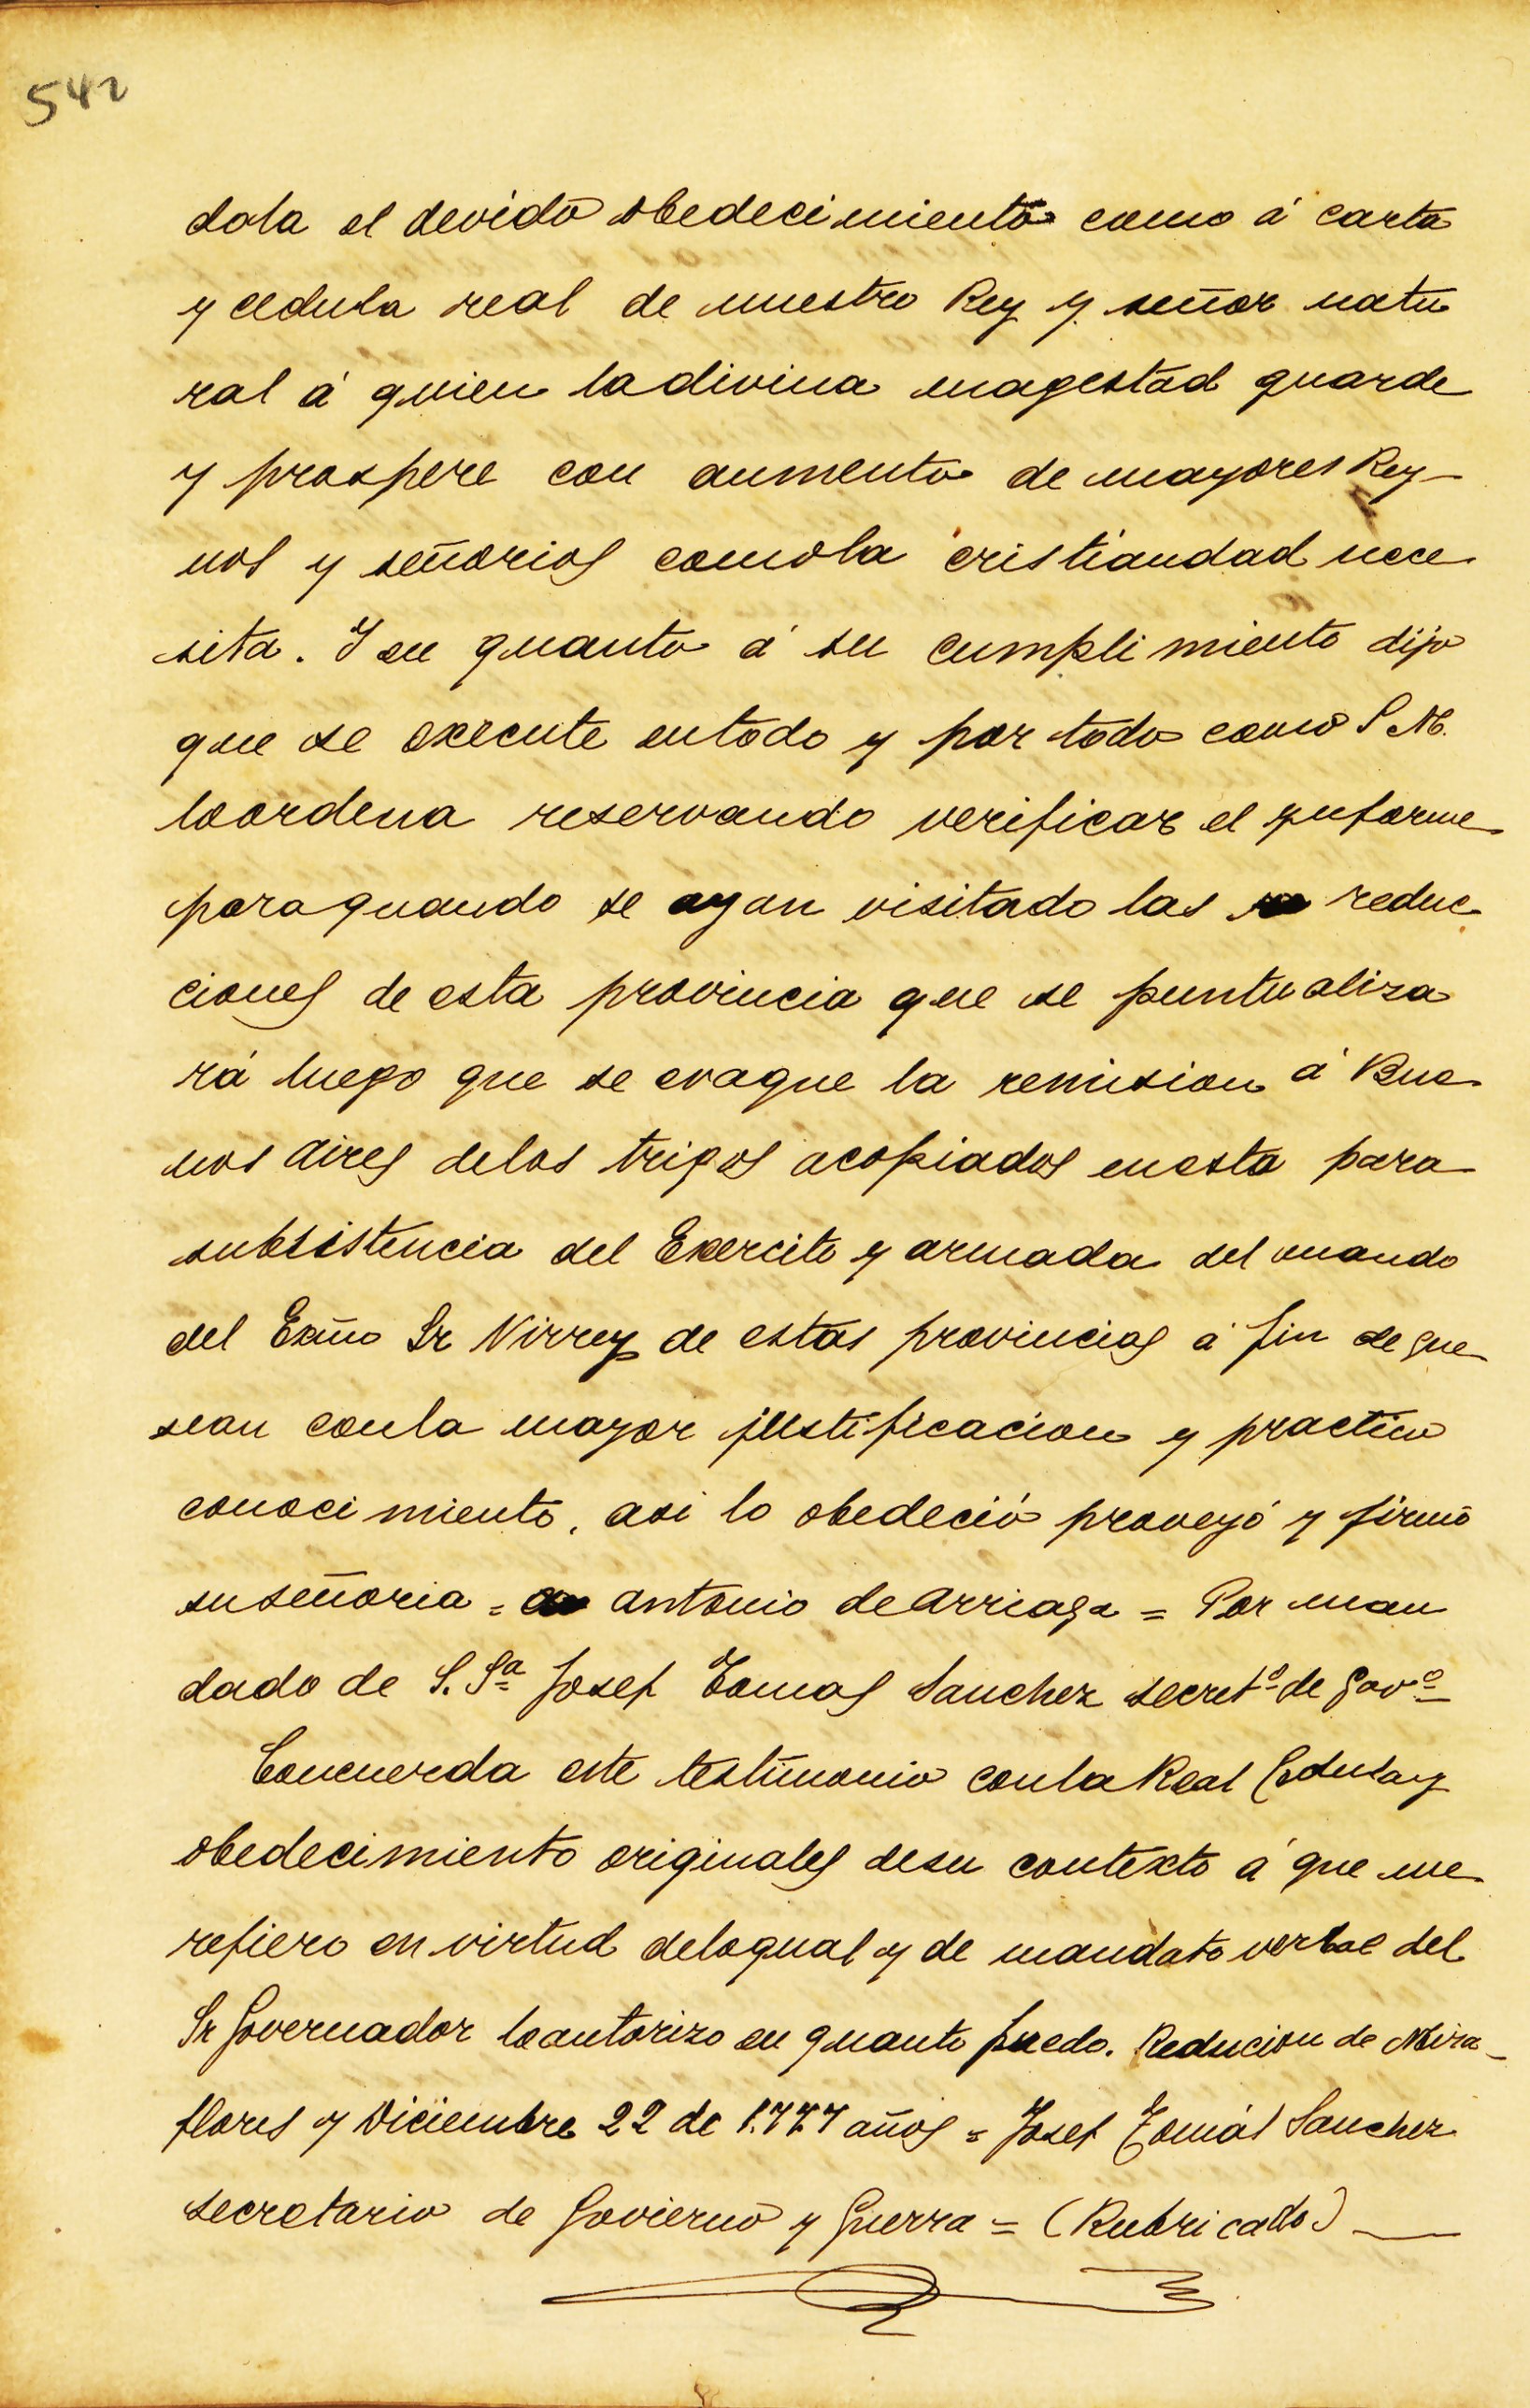 542
dola el devido obedecimiento como á carta
y cedula real de nuestro Rey y señor natu
ral á quien la divina magestad guarde
y prospere con aumento de mayores Rey-
nos y señorios como la cristiandad nece
sita. I en quanto á su cumplimiento dijo
que se execute en todo y por todo como S M.
lo ordena reservando verificar el ynforme
para quando se ayan visitado las reduc
ciones de esta provincia que se puntualiza
rá luego que se evaque la remision á Bue
nos aires de los trigos acopiados en esta para
subsistencia del Exercito y armada del mando
del Exmo Sr Virrey de estas provincias á fin de que
sean con la mayor justificacion y practico
conocimiento, asi lo obedeció proveyó y firmó
su señoria = antonio de arriaga = Por man
dado de S. Sª Josef Tomas Sanchez secretº de Govº
Concuerda este testimonio con la Real Cedula y
obedecimiento originales de su contexto á que me
refiero en virtud de lo qual y de mandato verbal del
Sr Governador lo autorizo en quanto puedo. Reducion de Mira-
flores y Diciembre 22 de 1.777 años = Josef Tomás Sanchez
secretario de Govierno y Guerra = (Rubricado)